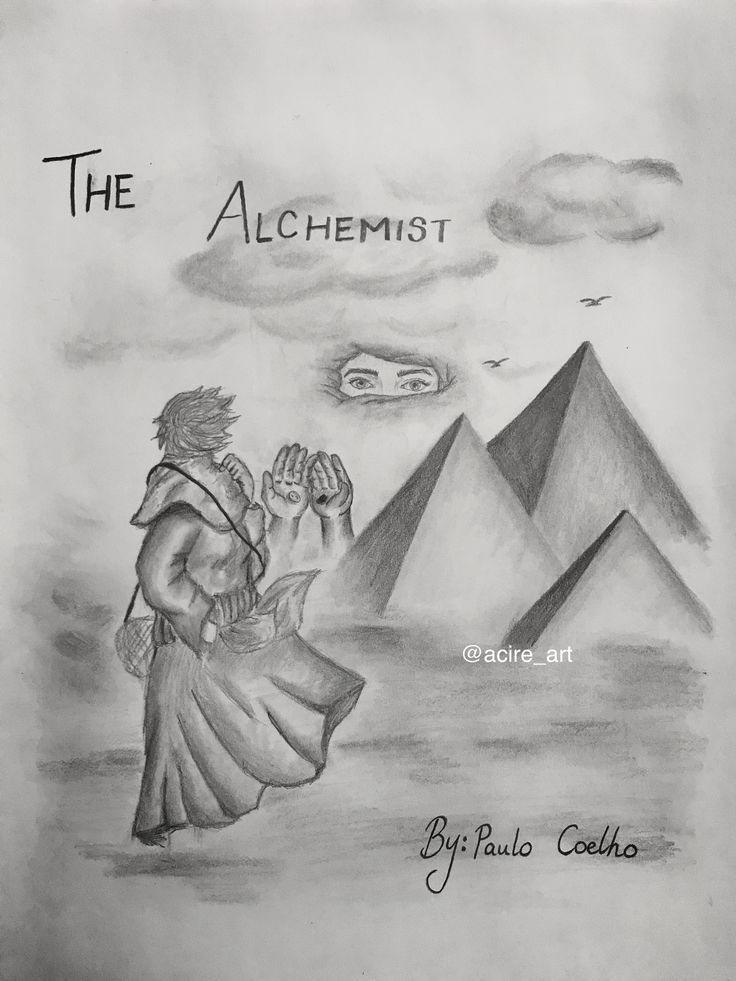 The Alchemist
@acire_art
By: Paulo Coelho